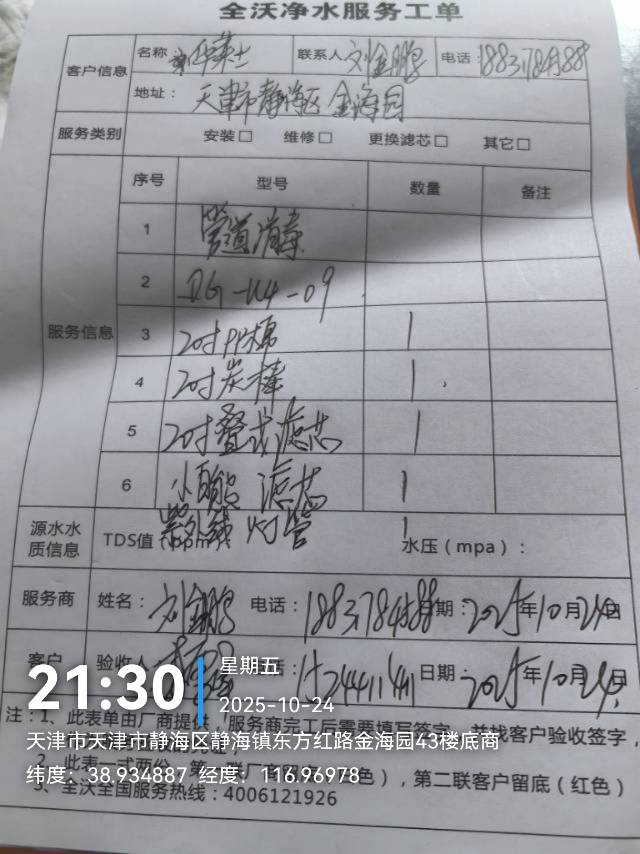 全沃净水服务工单
客户信息 名称 华莱士 联系人 刘金鹏 电话
地址： 天津市静海区 金海园
服务类别 安装□ 维修□ 更换滤芯□ 其它□
服务信息 序号 型号 数量 备注
1 管道消毒
2 DG-U4-09
3 20寸PP棉 1
4 20寸炭棒 1
5 20寸叠式滤芯 1
6 小白熊 滤芯 1
紫外线 灯管 1
源水水质信息 TDS值（ppm） 水压（mpa）：
服务商 姓名： 刘金鹏 电话： 日期： 2025年10月24日
客户 验收人 电话： 15244411441 日期： 2025年10月24日
21:30
星期五
2025-10-24
注：1、此表单由厂商提供，服务商完工后需要填写签字，并找客户验收签字，
天津市天津市静海区静海镇东方红路金海园43楼底商
2、此表一式两份，第一联厂商留底（ 色），第二联客户留底（红色）
纬度：38.934887 经度：116.96978
3、全沃全国服务热线：4006121926